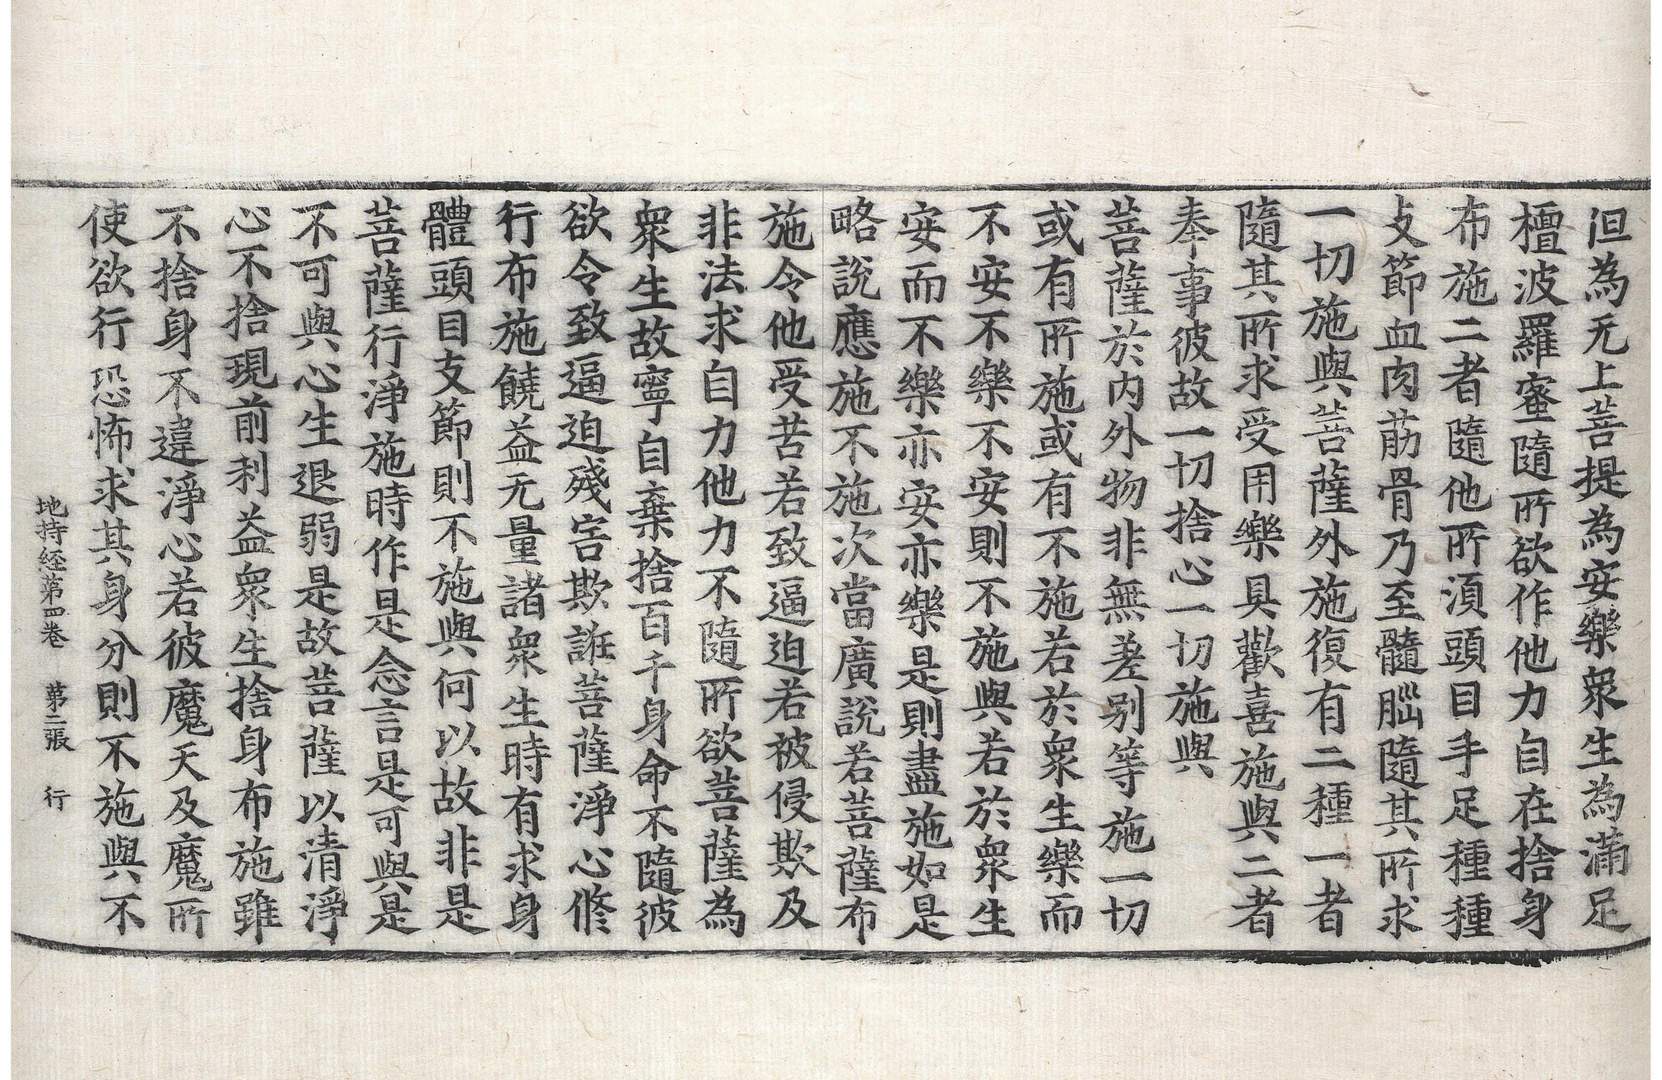 但為无上菩提為安樂衆生為滿足
檀波羅蜜隨所欲作他力自在捨身
布施二者隨他所須頭目手足種種
攴節血肉筋骨乃至髓腦隨其所求
一切施與菩薩外施復有二種一者
隨其所求受用樂具歡喜施與二者
奉事彼故一切捨心一切施與
菩薩於内外物非無差別等施一切
或有所施或有不施若於衆生樂而
不安不樂不安則不施與若於衆生
安而不樂亦安亦樂是則盡施如是
略說應施不施次當廣說若菩薩布
施令他受苦若致逼迫若被侵欺及
非法求自力他力不隨所欲菩薩為
衆生故寧自棄捨百千身命不隨彼
欲令致逼迫殘害欺誑菩薩淨心修
行布施饒益无量諸衆生時有求身
體頭目支節則不施與何以故非是
菩薩行淨施時作是念言是可與是
不可與心生退弱是故菩薩以清淨
心不捨現前利益衆生捨身布施雖
不捨身不違淨心若彼魔天及魔所
使欲行恐怖求其身分則不施與不
地持経第四卷　第二張　行